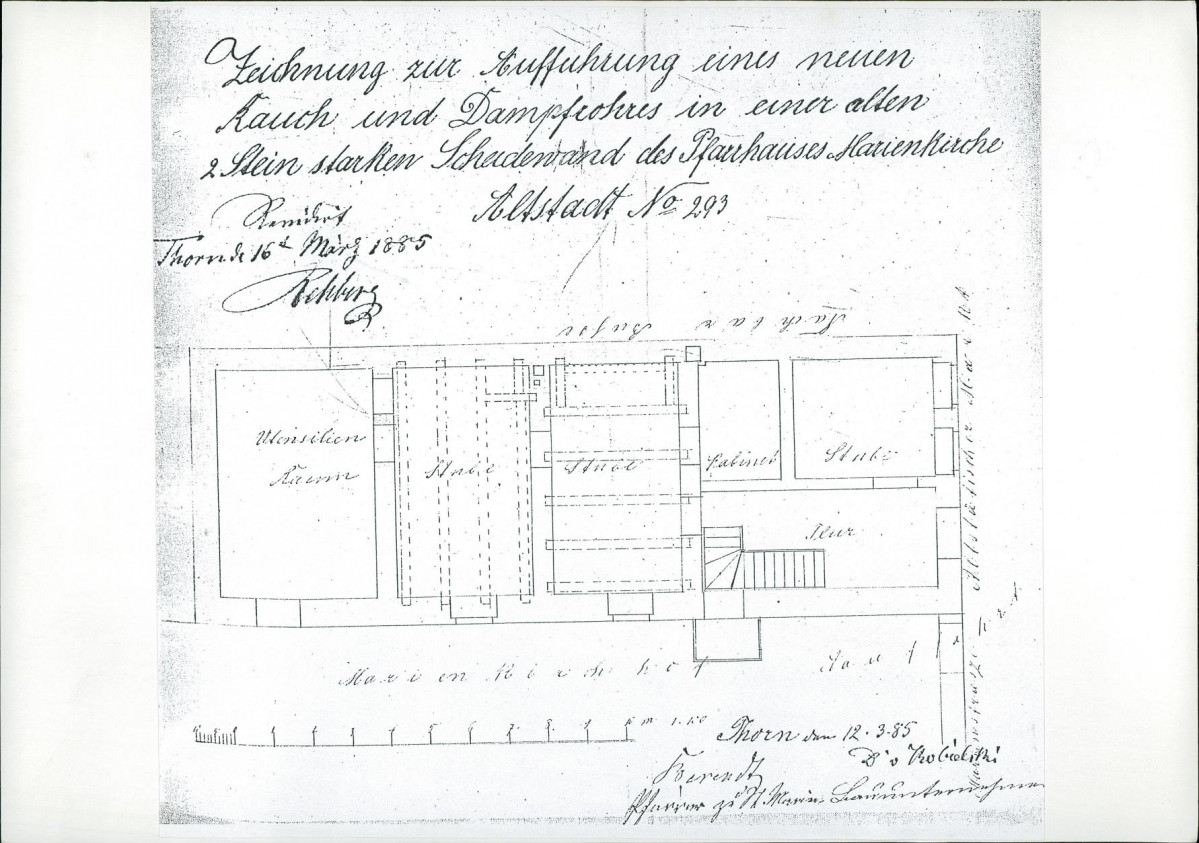 Zeichnung zur Aufführung eines neuen
Rauch und Dampfrohres in einer alten
2 Stein starken Scheidewand des Pfarrhauses Marienkirche
Altstadt No 293
Revidirt
Thorn d. 16t März 1885
Rehberg
Nachbar
Utensilien
Raum
Stube
Stube
Kabinet
Stube
Flur
Altstätischer Markt
Marien Kirchhof
Marienstrasze
Thorn den 12.3.85
Berendt
Pfarrer zu St. Marien
Bauunternehmer